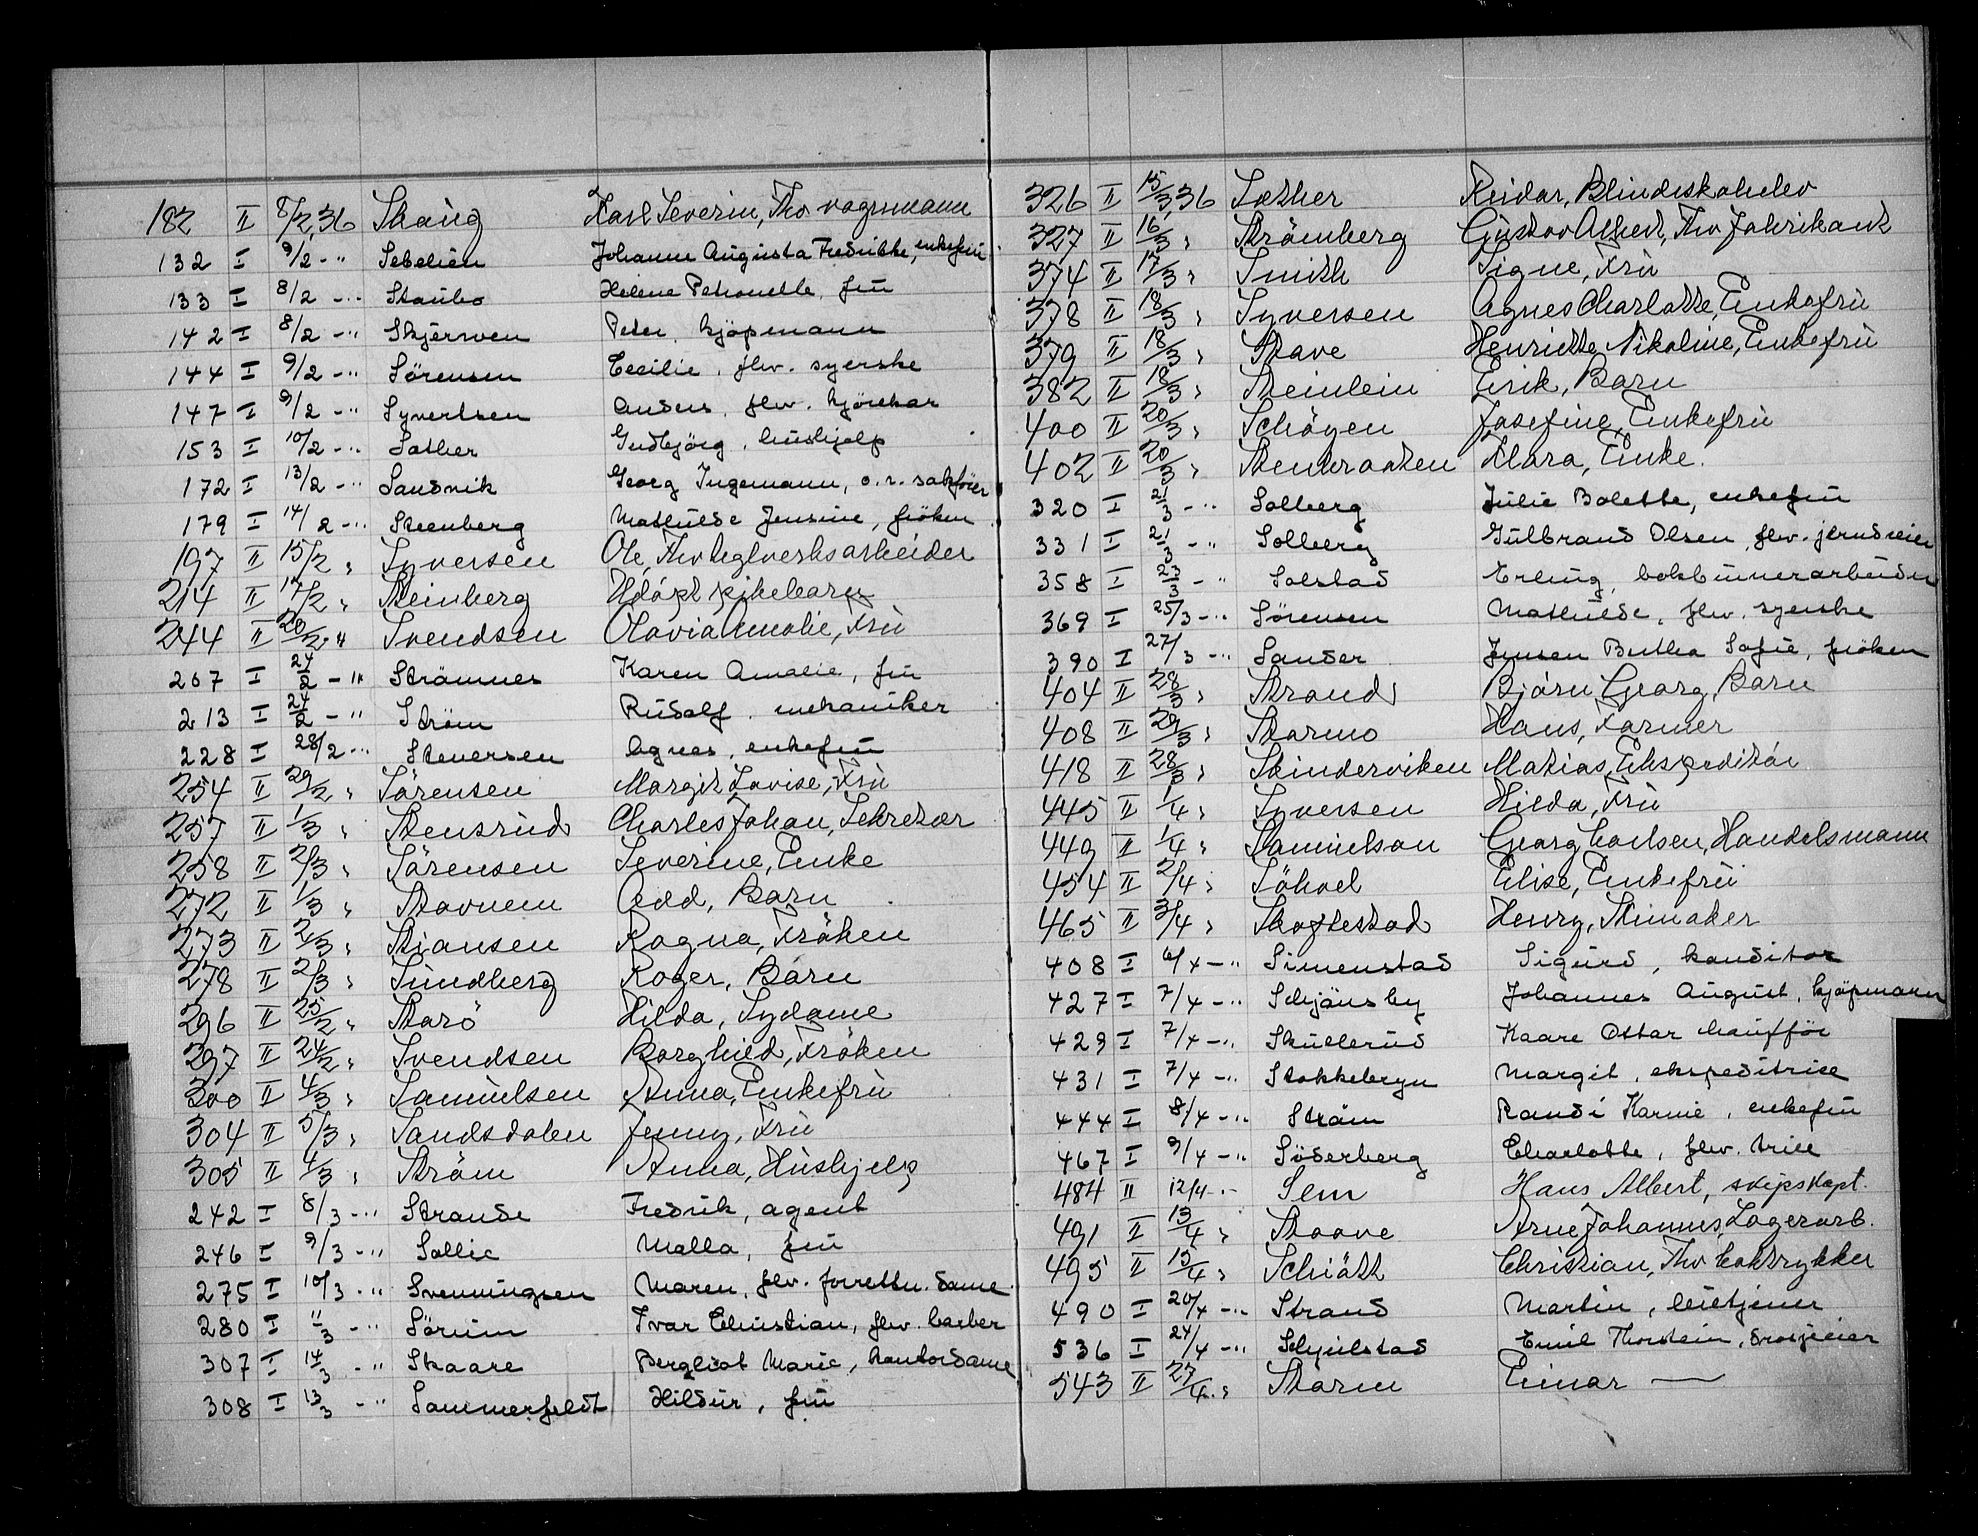 182 II 8/2,36 Skaug Karl Severin, Fhv vognmann
132 I 9/2 -" Sebelien Johanne Augusta Fredrikke, enkefru
133 I 8/2 -" Staubo Helene Petronelle, fru
142 I 8/2 -" Skjerven Peter, kjøpmann
144 I 9/2 -" Sörensen Cecilie, fhv. syerske
147 I 9/2 -" Syvertsen Anders, fhv. kjörekar
153 I 10/2 -" Sæther Gudbjörg, hushjelp
172 I 13/2 -" Sandvik Georg Ingemann, o.r. sakförer
179 I 14/2 -" Steenberg Mathilde Jensine, fröken
197 II 15/2 " Syversen Ole, Fhv teglverksarbeider
214 II 17/2 " Steinberg Udöpt pikebarn
244 II 20/2 " Svendsen Olavia Amalie, Fru
207 I 24/2 -" Strömnes Karen Amalie, fru
213 I 24/2 -" Ström Rudolf, mekaniker
228 I 28/2 -" Steversen Agnes, enkefru
254 II 29/2 " Sörensen Margit Lovise, Fru
257 II 1/3 " Stensrud Charles Johan, Sekretær
258 II 2/3 " Sörensen Severine, Enke
272 II 1/3 " Stavnem Odd, Barn
273 II 2/3 " Stiansen Ragna, Fröken
278 II 2/3 " Sundberg Roger, Barn
296 II 25/2 " Starö Hilda, Sydame
297 II 24/2 " Svendsen Borghild, Fröken
300 II 4/3 " Samuelsen Anna, Enkefru
304 II 5/3 " Sandsdalen Jenny, Fru
305 II 4/3 " Ström Anna, Hushjelp
242 I 8/3 -" Strande Fredrik, agent
246 I 9/3 -" Sollie Malla, fru
275 I 10/3 -" Svenningsen Maren, fhv. forretn. dame
280 I 11/3 -" Sörum Ivar Christian, fhv. barber
307 I 14/3 -" Skaare Bergliot Marie, kontordame
308 I 13/3 -" Sommerfeldt Hildur, fru
326 II 15/3,36 Sæther Reidar, Blindeskoleelev
327 II 16/3 " Strömberg Gustav Albert, Fhv Fabrikant
374 II 17/3 " Smith Signe, Fru
378 II 18/3 " Syversen Agnes Charlotte, Enkefru
379 II 18/3 " Stave Henriette Nikoline, Enkefru
382 II 18/3 " Steinlein Erik, Barn
400 II 20/3 " Schöyen Josefine, Enkefru
402 II 20/3 " Stenbraaten Klara, Enke.
320 I 21/3 -" Solberg Julie Bolette, enkefru
331 I 21/3 -" Solberg Gulbrand Olsen, fhv. jerndreier
358 I 23/3 -" Solstad Erling, bokbinnerarbeider
369 I 25/3 -" Sörensen Mathilde, fhv. syerske
390 I 27/3 -" Sander Jensen Bertha Sofie, fröken
404 II 28/3 " Strand Bjørn Georg, Barn
408 II 29/3 " Starmo Hans, Farmer
418 II 28/3 " Skinderviken Matias, Ekspeditör
445 II 1/4 " Syversen Hilda, Fru
449 II 1/4 " Samuelson Georg Carlsen, Handelsmann
454 II 2/4 " Söhoel Elise, Enkefru
465 II 3/4 " Skoftestad Henry, Skimaker
408 I 6/4 -" Simenstad Sigurd, konditor
427 I 7/4 -" Schjönsby Johannes August, kjøpmann
429 I 7/4 -" Skullerud Kaare Ottar chaufför
431 I 7/4 -" Stokkebryn Margit, ekspeditrise
444 I 8/4 -" Ström Randi Karine, enkefru
467 I 9/4 -" Söderberg Charlotte, fhv.
484 II 12/4 -" Sem Hans Albert, skipskapt.
491 II 13/4 " Staave Arne Johannes, Lagerarb.
495 II 15/4 " Schiött Christian, Fhv boktrykker
490 I 20/4 -" Strand Martin, leietjener
536 I 24/4 -" Schjulstad Emil Thorstein, drosjeeier
543 II 27/4 " Storm Einar —